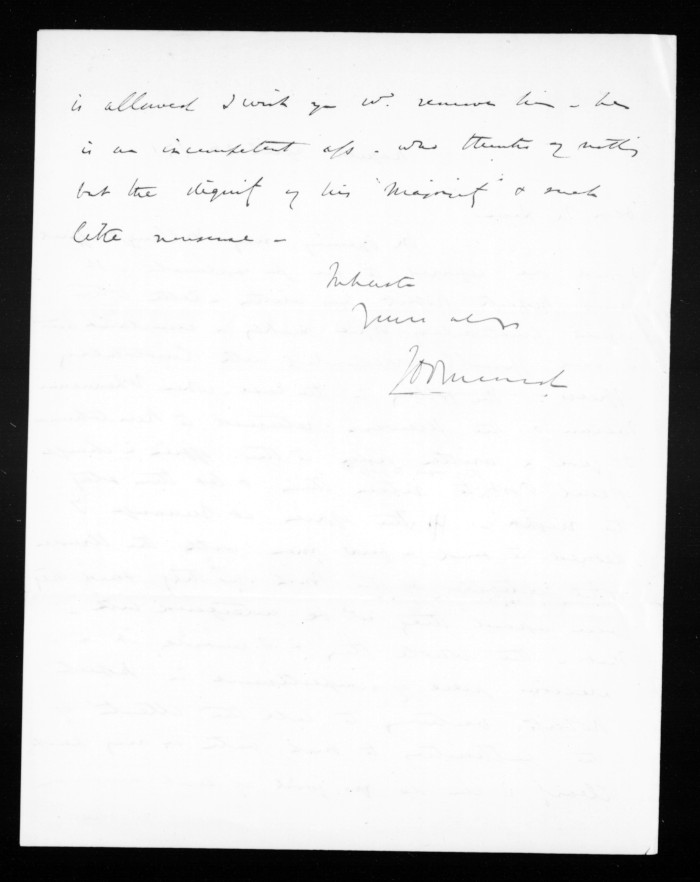 is allowed I wish you wd. remove him - he
is an incompetent ass - who thinks of nothing
but the dignity of his "Majority" & such
like nonsense -
In haste
Yours always